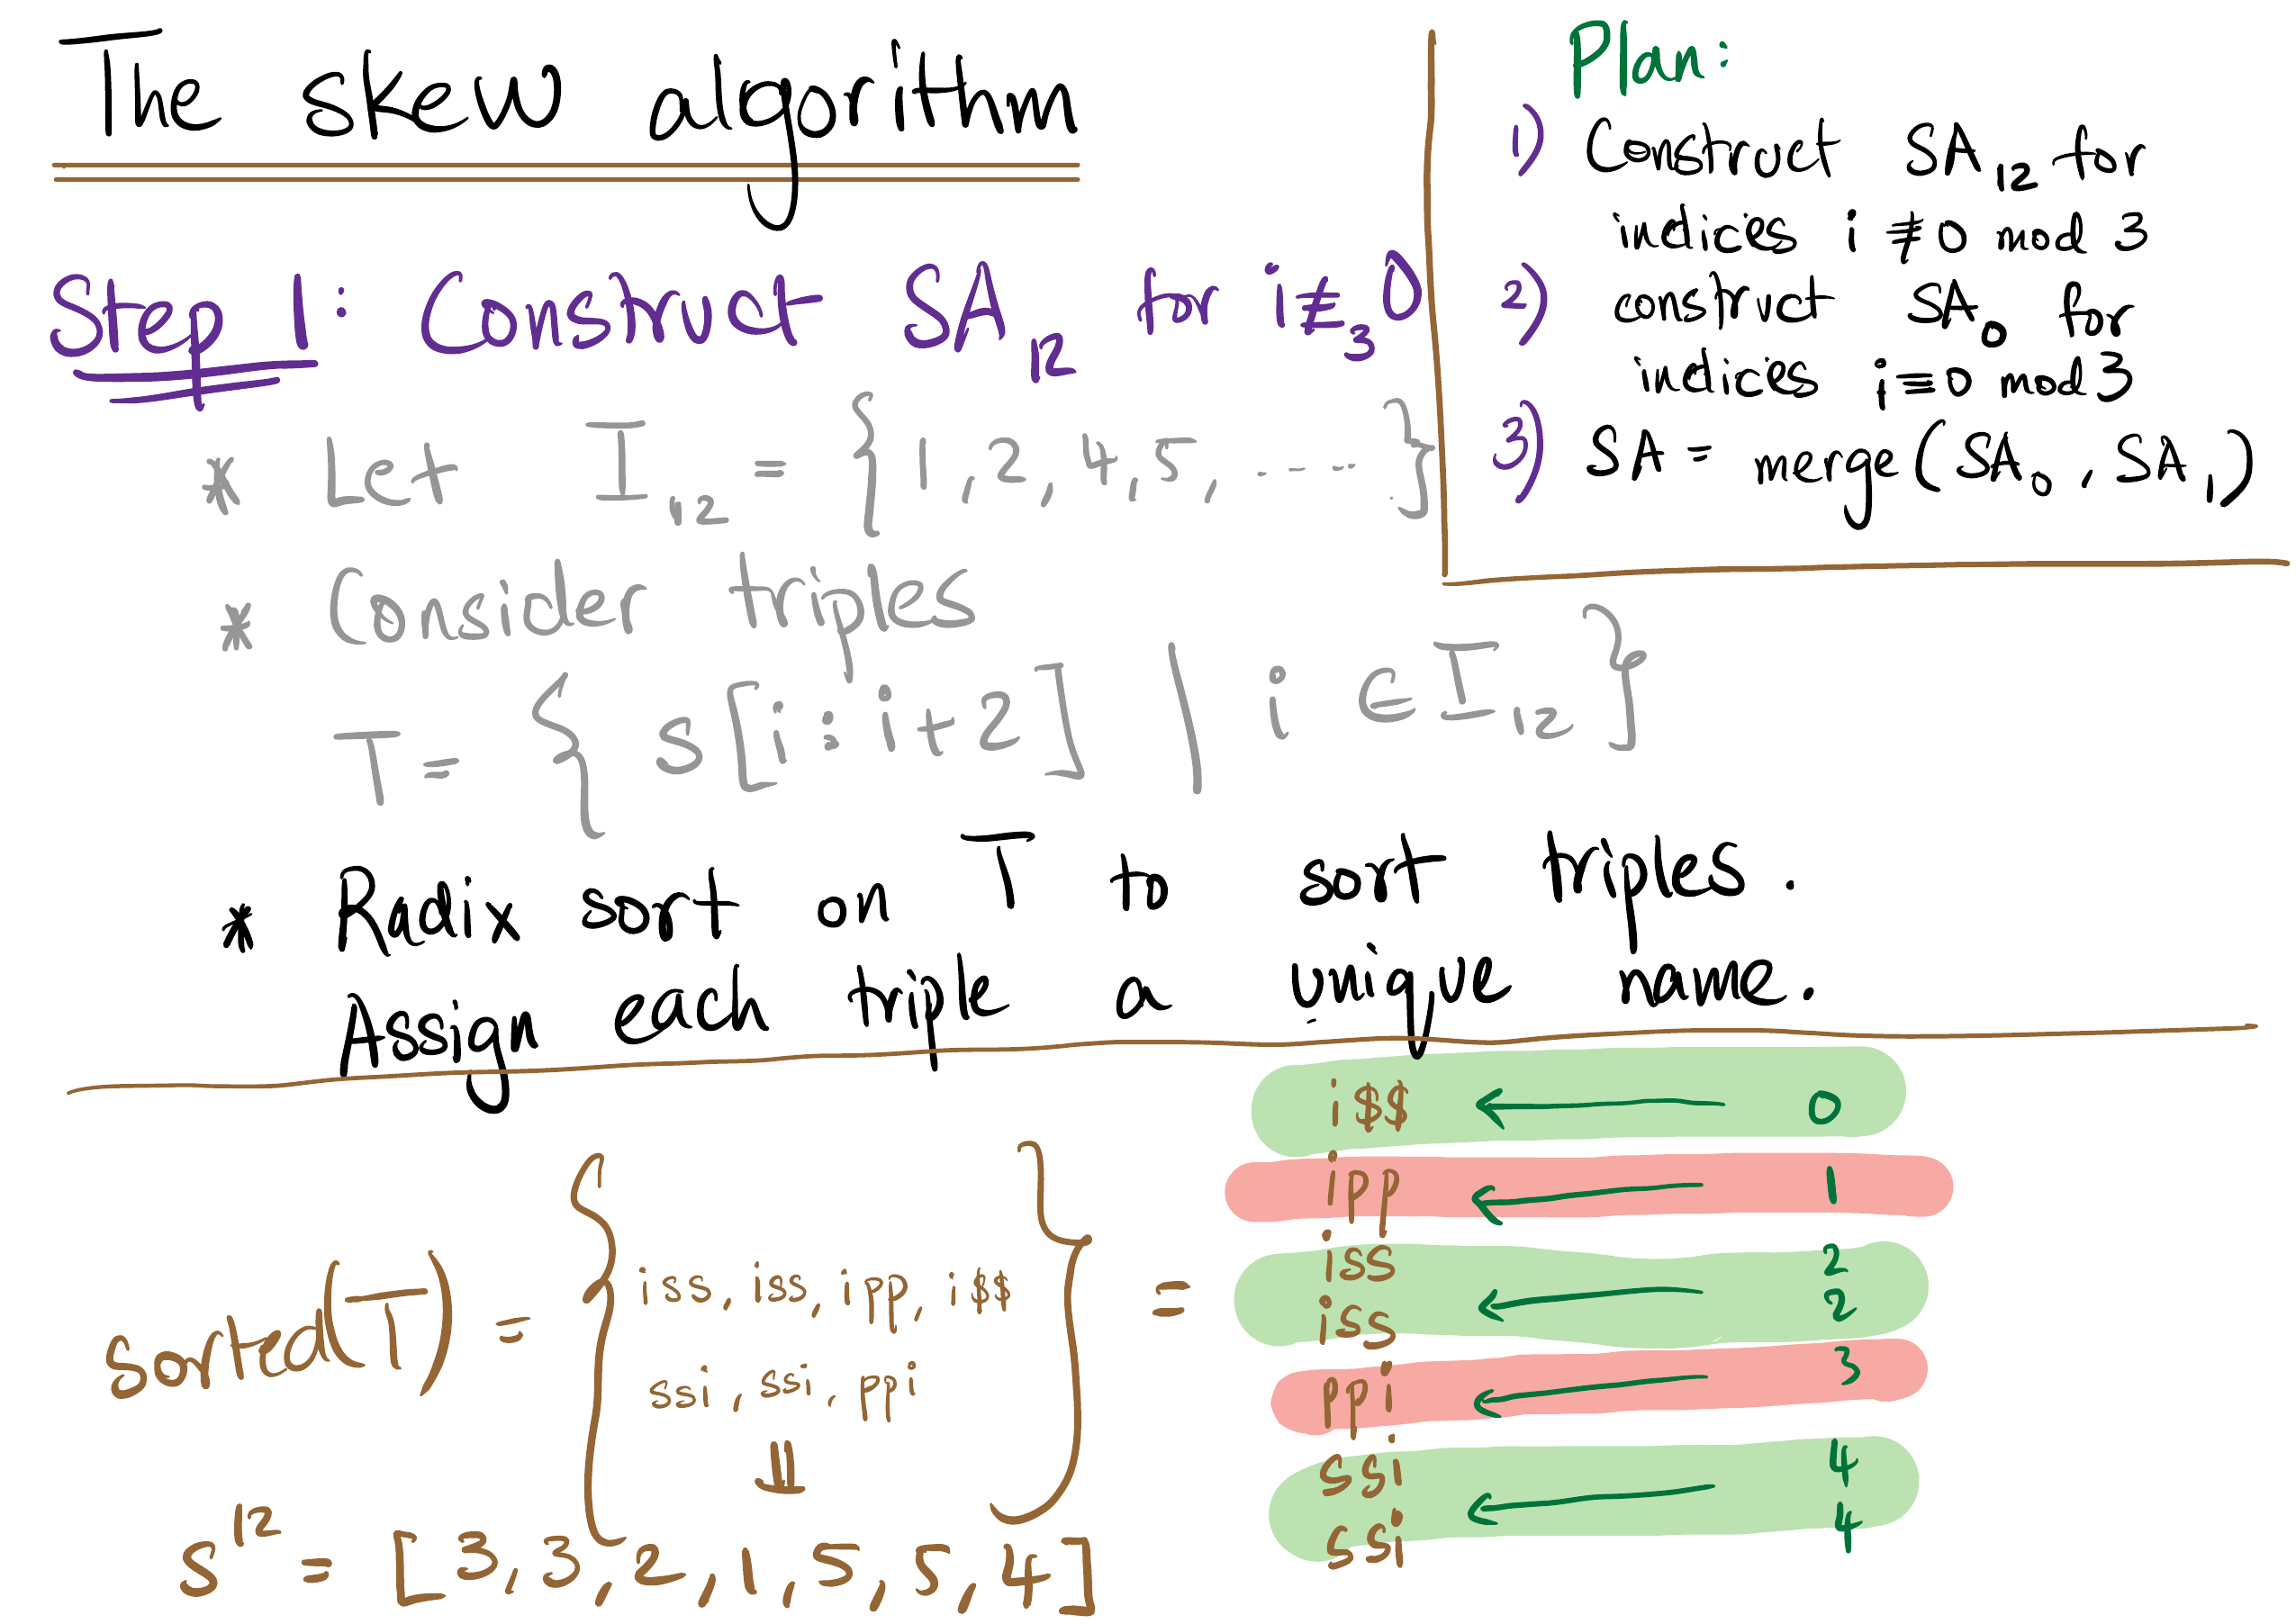 The skew algorithm
Plan:
1) Construct SA₁₂ for
indices i ≢ 0 mod 3
2) construct SA₀ for
indices i ≡ 0 mod 3
3) SA = merge(SA₀, SA₁)
Step 1: Construct SA₁₂ for i ≢₃ 0
* Let I₁₂ = {1, 2, 4, 5, .....}
* Consider triples
T = { s[i : i+2] | i ∈ I₁₂ }
* Radix sort on T to sort triples.
Assign each triple a unique name.
sorted(T) = { iss, iss, ipp, i$$
ssi, ssi, ppi } =
i$$ ← 0
ipp ← 1
iss 2
iss ← 2
ppi ← 3
ssi 4
ssi ← 4
⇓
s¹² = [3, 3, 2, 1, 5, 5, 4]